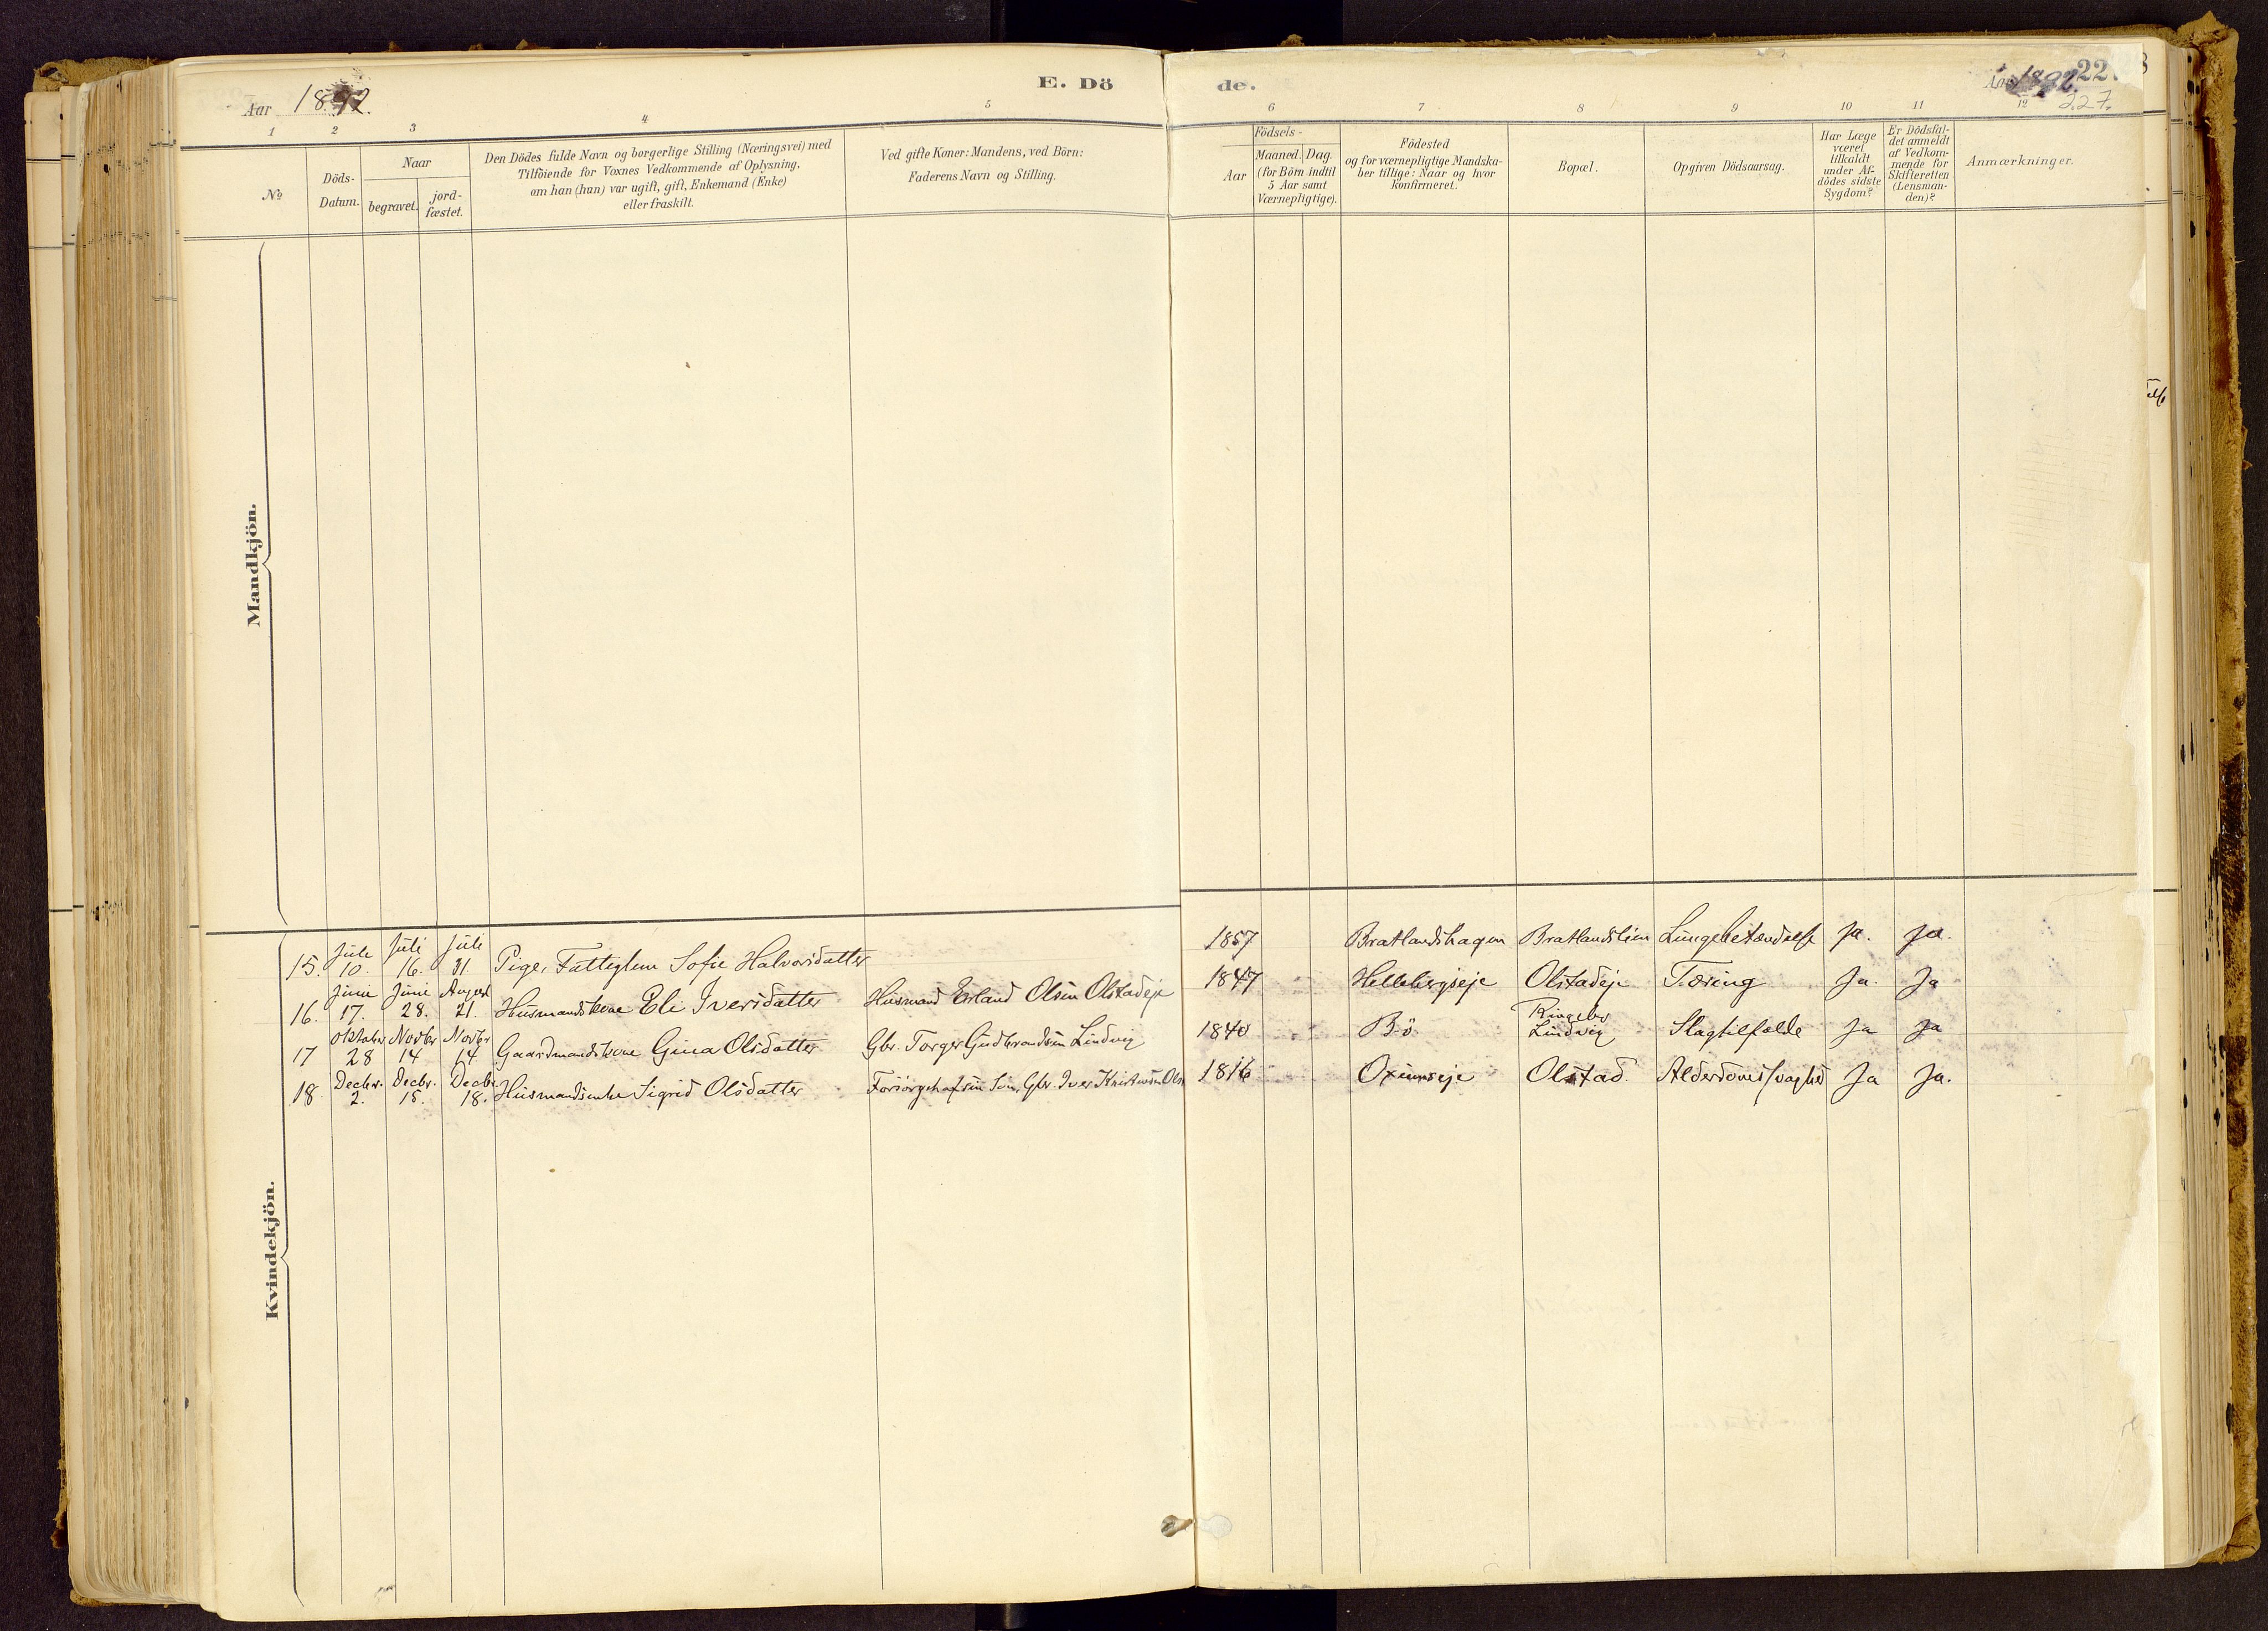 Aar 1892. E. Dö
1 2 3 4 5
№ Döds-Datum. Naar begravet. jord-fæstet. Den Dödes fulde Navn og borgerlige Stilling (Næringsvei) med Tilföiende for Voxnes Vedkommende af Oplysning, om han (hun) var ugift, gift, Enkemand (Enke) eller fraskilt. Ved gifte Koner: Mandens, ved Börn: Faderens Navn og Stilling.
Mandkjön.
Kvindekjön.
de. Aar 1892. 22
227.
6 7 8 9 10 11 12
Födsels- Aar Maaned. Dag. (for Börn indtil 5 Aar samt Værnepligtige). Födested og for værnepligtige Mandskaber tillige: Naar og hvor konfirmeret. Bopæl. Opgiven Dödsaarsag. Har Læge været tilkaldt under Afdödes sidste Sygdom? Er Dödsfaldet anmeldt af Vedkommende for Skifteretten (Lensmanden)? Anmærkninger.
15. Juli 10. Juli 16. Juli 31. Pige, Fattiglem Sofie Halvorsdatter 1857 Bratlandshagen Bratlandslien Lungebetændelse Ja. Ja.
16. Juni 17. Juni 28. August 21. Husmandskone Eli Iversdatter Husmand Erland Olsen Olstadeje 1847 Hellebergseje Olstadeje Tæring Ja. Ja
17 Oktober 28 Novbr 14 Novbr 14 Gaardmandskone Gina Olsdatter Gbr. Torger Gudbrandsen Lindvig 1840 Bö Ringebu Lindvig Slagtilfælde Ja Ja
18. Decbr. 2. Decbr. 15. Decbr. 18. Husmandsenke Sigrid Olsdatter Gbr. Iver 1816 Olstad. Alderdomssvaghed Ja Ja.